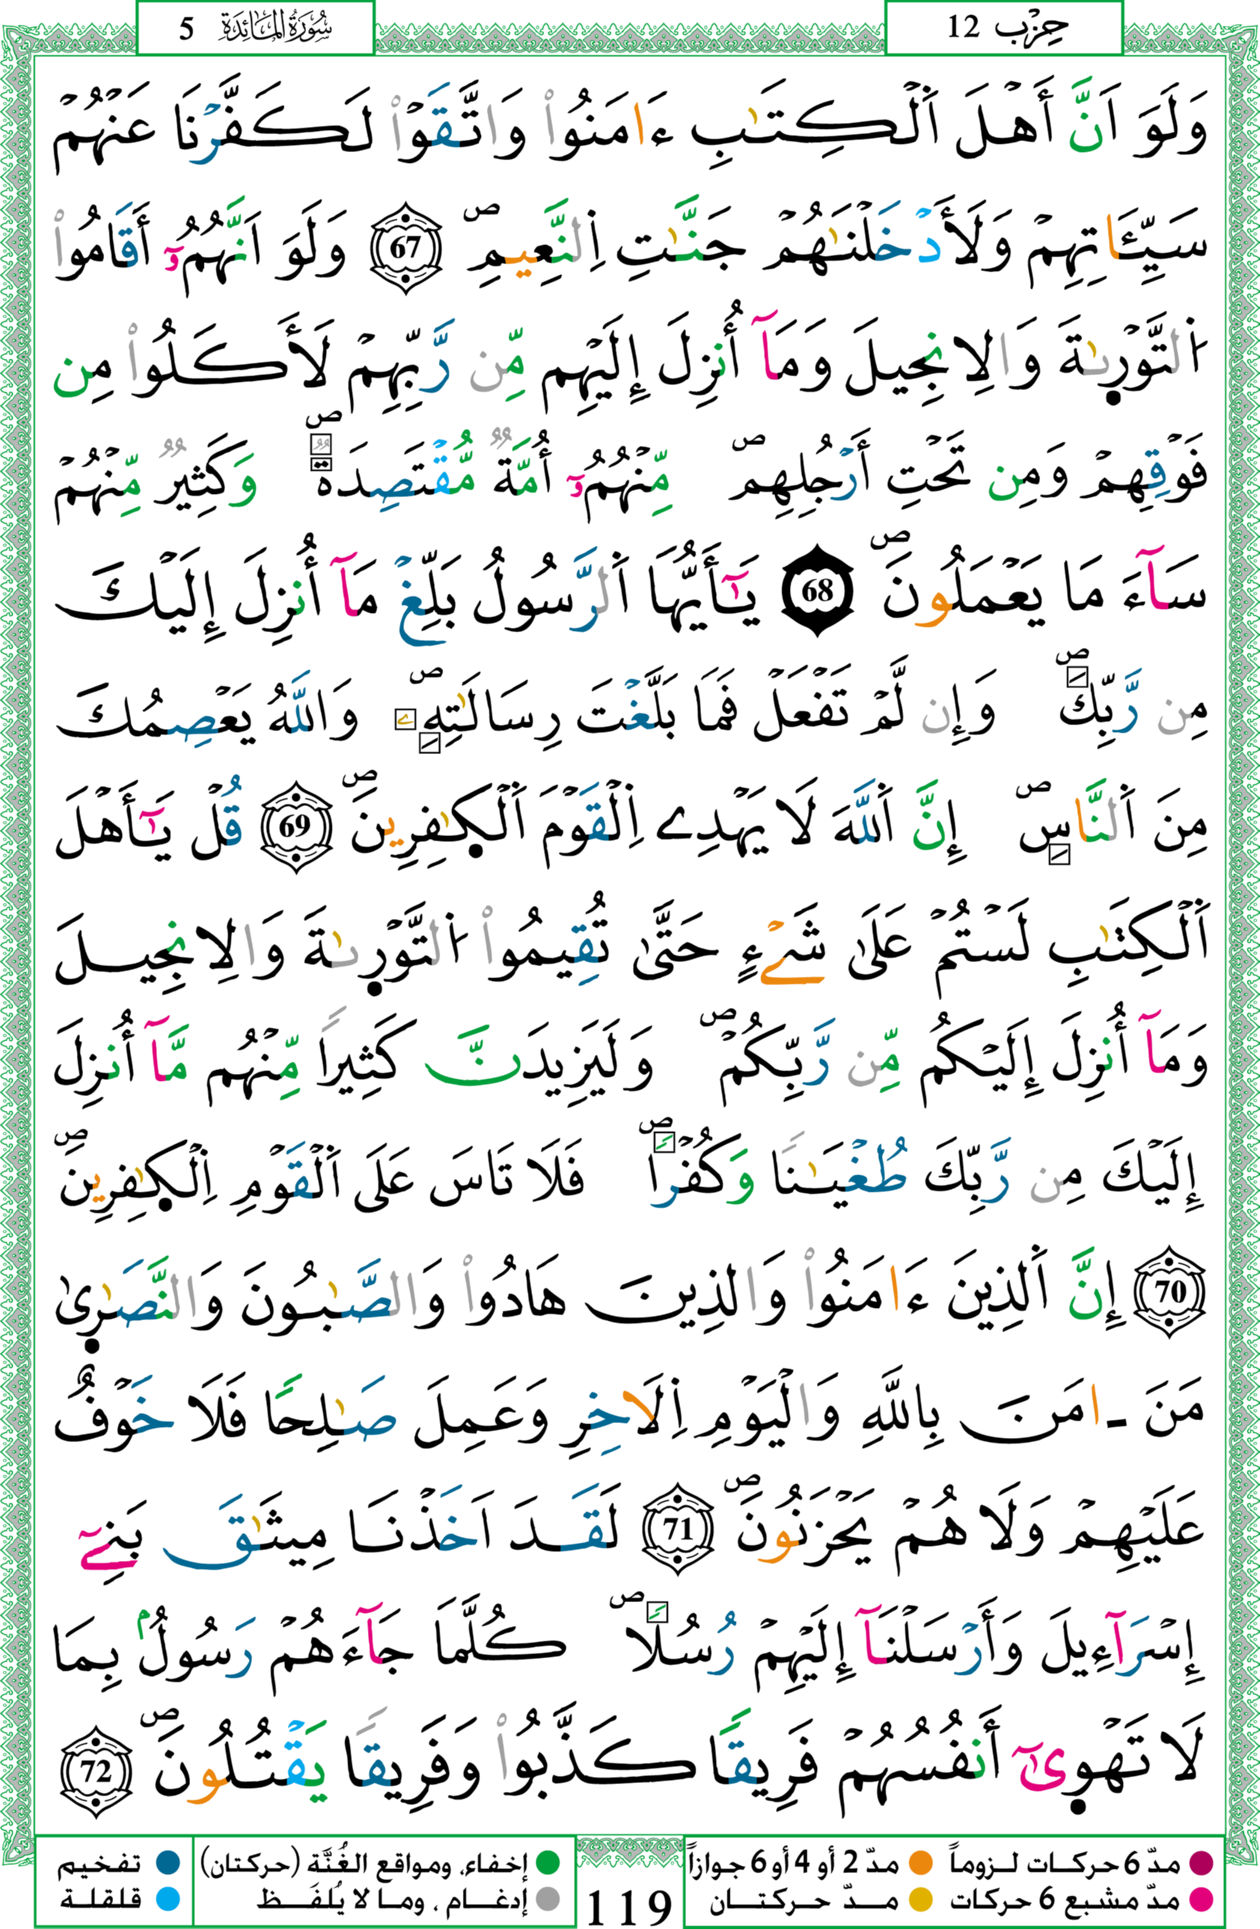 سُورَةُ المَائِدَة 5
حِزْب 12
وَلَوَ اَنَّ أَهْلَ اَلْكِتَٰبِ ءَامَنُواْ وَاتَّقَوْاْ لَكَفَّرْنَا عَنْهُمْ
سَيِّـَٔاتِهِمْ وَلَأَدْخَلْنَٰهُمْ جَنَّٰتِ اِلنَّعِيمِ ص 67 وَلَوَ اَنَّهُمُۥٓ أَقَامُواْ
اُ۬لتَّوْر۪ىٰةَ وَالِانجِيلَ وَمَآ أُنزِلَ إِلَيْهِم مِّن رَّبِّهِمْ لَأَكَلُواْ مِن
فَوْقِهِمْ وَمِن تَحْتِ أَرْجُلِهِم ص مِّنْهُمُۥٓ أُمَّةٞ مُّقْتَصِدَةٞ ص وَكَثِيرٞ مِّنْهُمْ
سَآءَ مَا يَعْمَلُونَ ص 68 يَٰٓأَيُّهَا اَلرَّسُولُ بَلِّغْ مَآ أُنزِلَ إِلَيْكَ
مِن رَّبِّكَ ص وَإِن لَّمْ تَفْعَلْ فَمَا بَلَّغْتَ رِسَالَٰتِهِۦ ص وَاللَّهُ يَعْصِمُكَ
مِنَ اَلنَّاسِ ص إِنَّ اَللَّهَ لَا يَهْدِے اِلْقَوْمَ اَلْكٰ۪فِرِينَ ص 69 قُلْ يَٰٓأَهْلَ
اَلْكِتَٰبِ لَسْتُمْ عَلَىٰ شَےْءٍ حَتَّىٰ تُقِيمُواْ اُ۬لتَّوْر۪ىٰةَ وَالِانجِيلَ
وَمَآ أُنزِلَ إِلَيْكُم مِّن رَّبِّكُمْ ص وَلَيَزِيدَنَّ كَثِيراٗ مِّنْهُم مَّآ أُنزِلَ
إِلَيْكَ مِن رَّبِّكَ طُغْيَٰناٗ وَكُفْراٗ ص فَلَا تَاسَ عَلَى اَلْقَوْمِ اِلْكٰ۪فِرِينَ ص
70 إِنَّ اَلذِينَ ءَامَنُواْ وَالذِينَ هَادُواْ وَالصَّٰبُونَ وَالنَّصَٰر۪ىٰ
مَنَ ـ امَنَ بِاللَّهِ وَالْيَوْمِ اِلَاخِرِ وَعَمِلَ صَٰلِحاٗ فَلَا خَوْفٌ
عَلَيْهِمْ وَلَا هُمْ يَحْزَنُونَ ص 71 لَقَدَ اَخَذْنَا مِيثَٰقَ بَنِےٓ
إِسْرَآءِيلَ وَأَرْسَلْنَآ إِلَيْهِمْ رُسُلاٗ ص كُلَّمَا جَآءَهُمْ رَسُولُۢ بِمَا
لَا تَهْو۪ىٰٓ أَنفُسُهُمْ فَرِيقاٗ كَذَّبُواْ وَفَرِيقاٗ يَقْتُلُونَ ص 72
مدّ 6 حركات لـزوماً مدّ 2 أو 4 أو 6 جوازاً إخفاء، ومواقع الغُنَّة (حركتان) تفخيم
مدّ مشبع 6 حركات مـدّ حـركتـان إدغـام ، ومـا لا يُلفَـظ قلقلة
119